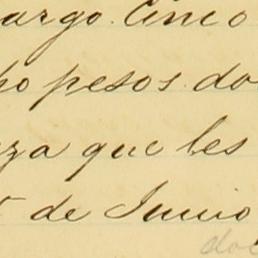 argo. Cinco
pesos do
za que les
de Junio
doc